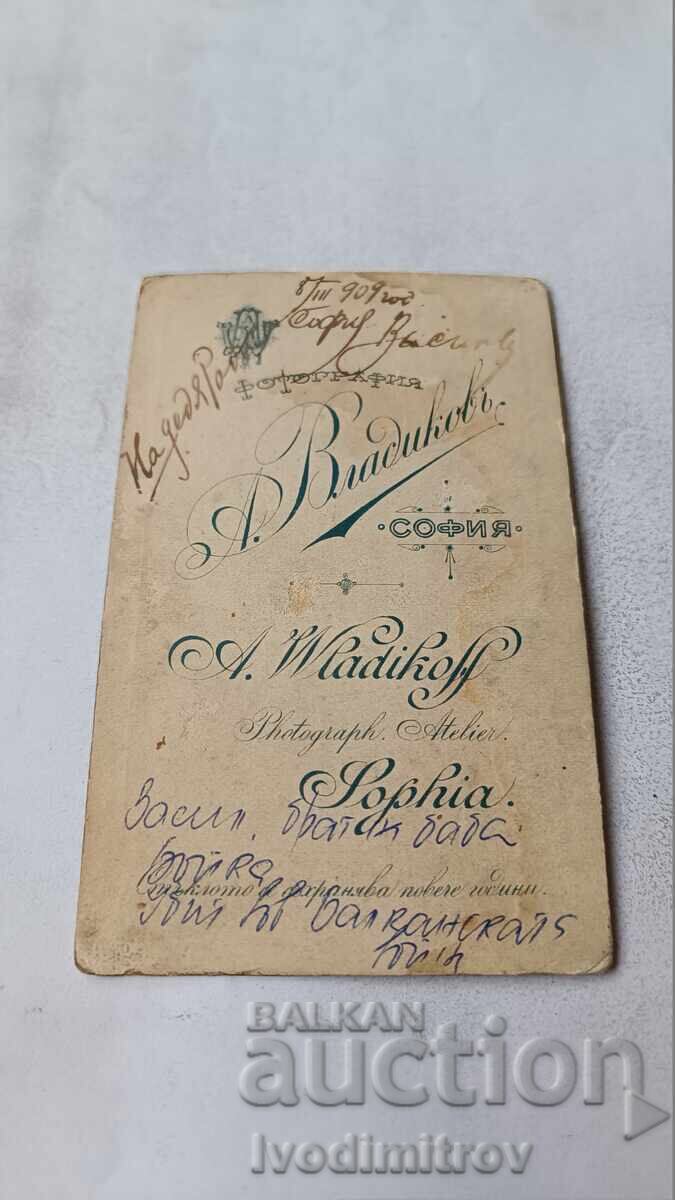 8/III 909 год
София
На дядя
ФОТОГРАФИЯ
А. Владиковъ
СОФИЯ
A. Wladikoff
Photograph. Atelier.
Sophia.
Васил. брат на баба
Стъклото се съхранява повече години.
Балканската
BALKAN
auction
Ivodimitrov